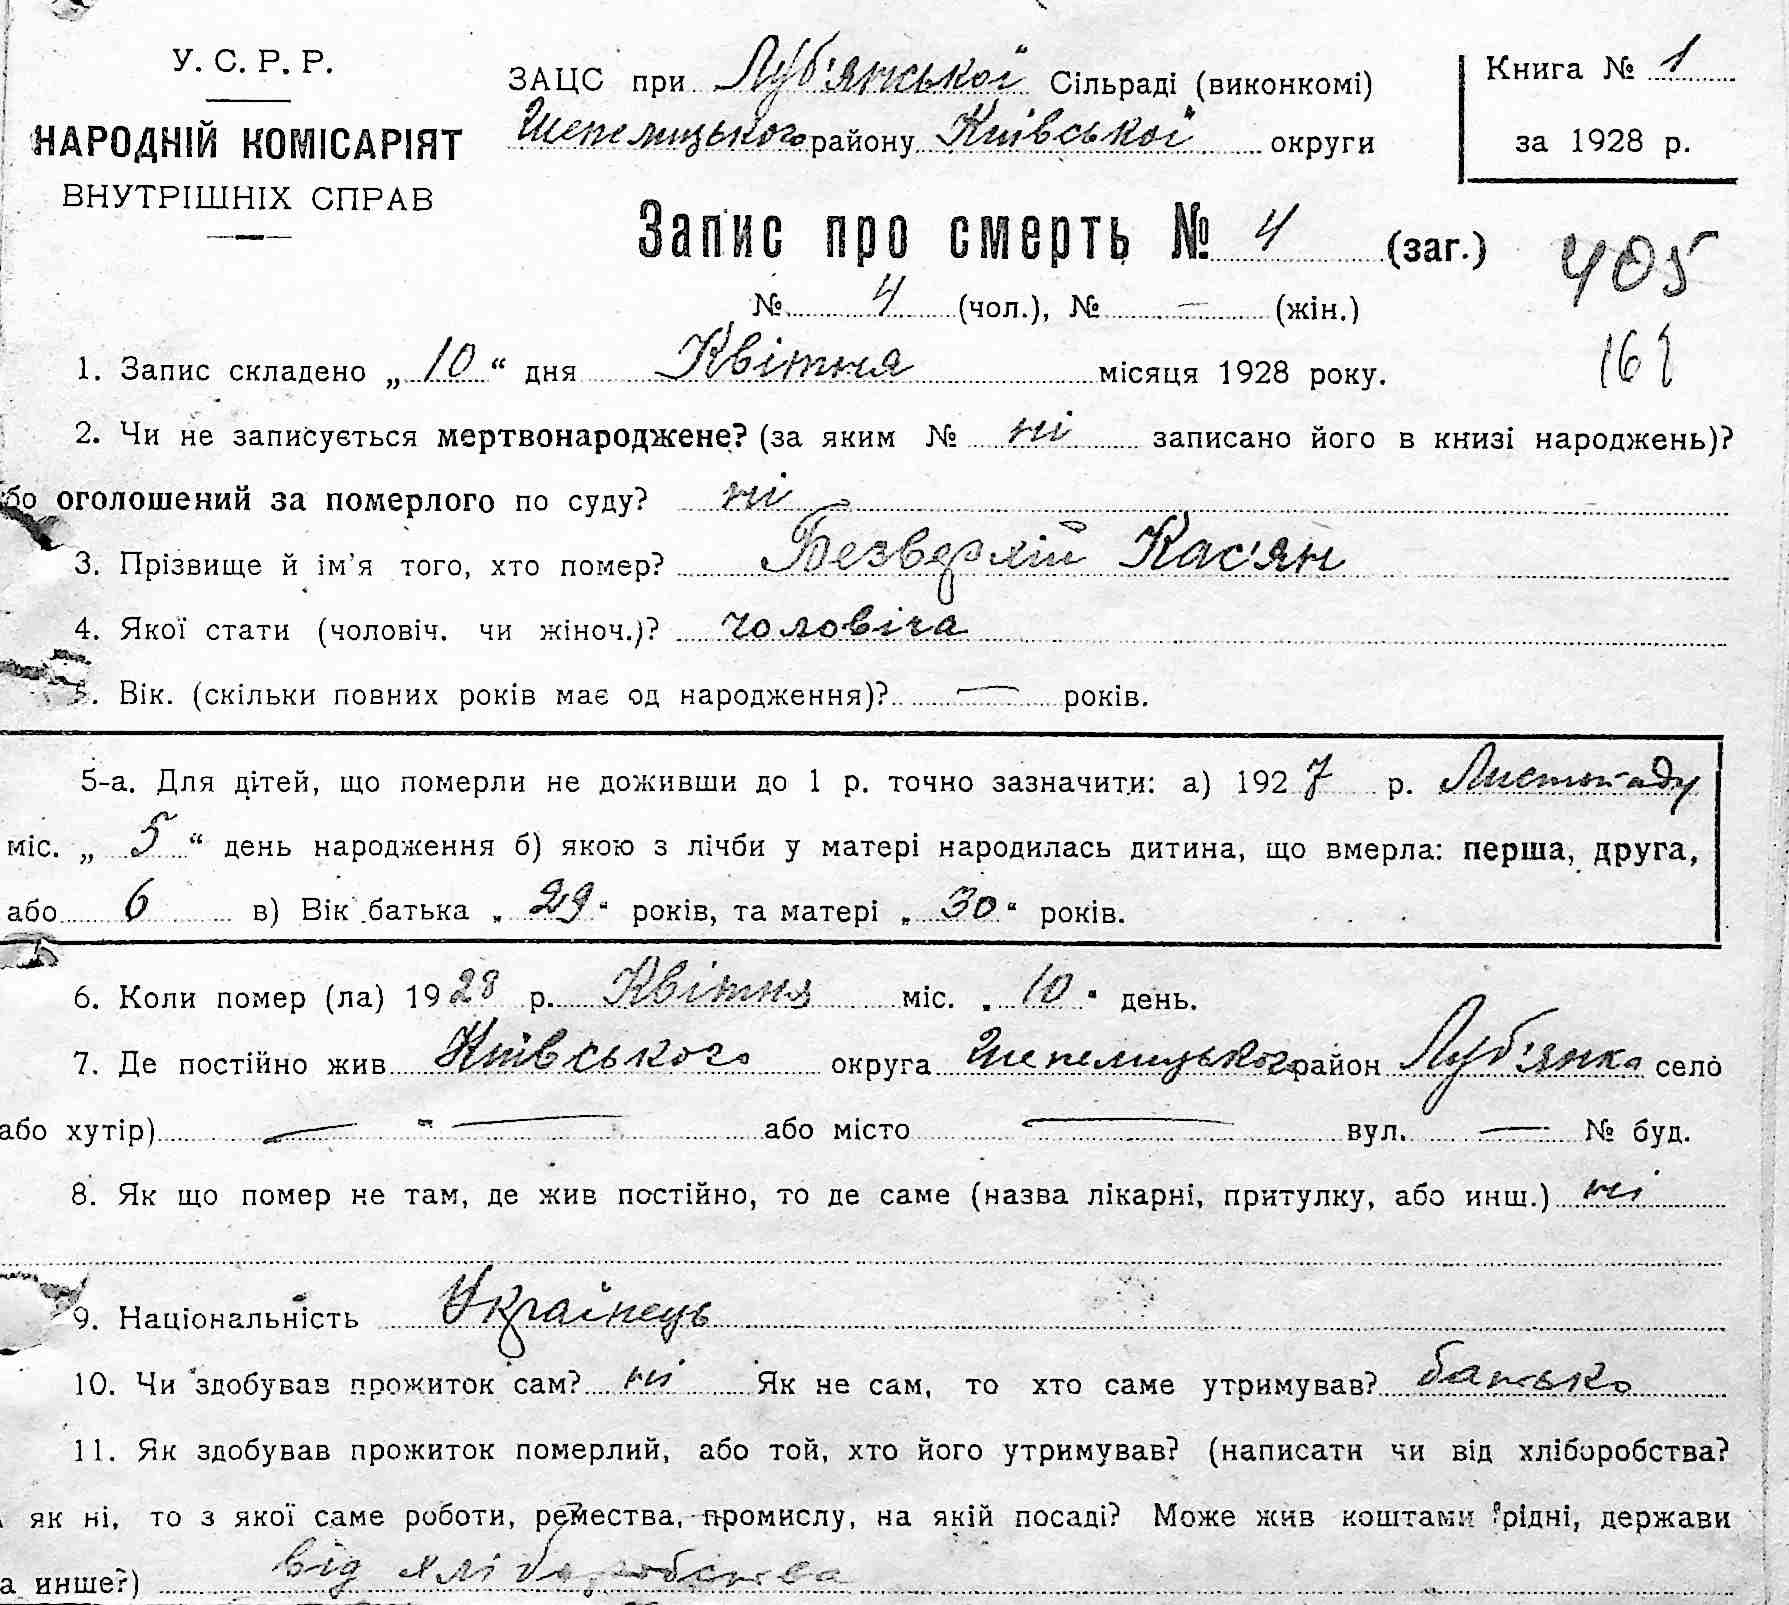 У. С. Р. Р.
НАРОДНІЙ КОМІСАРІЯТ
ВНУТРІШНІХ СПРАВ
ЗАЦС при Луб'янської Сільраді (виконкомі)
Шепелицького району Київської округи
Книга № 1
за 1928 р.
Запис про смерть № 4 (заг.)
405
№ 4 (чол.), № — (жін.)
161
1. Запис складено „ 10 “ дня Квітня місяця 1928 року.
2. Чи не записується мертвонароджене? (за яким № ні записано його в книзі народжень)?
бо оголошений за померлого по суду? ні
3. Прізвище й ім'я того, хто помер? Безверхій Кас'ян
4. Якої стати (чоловіч. чи жіноч.)? чоловіча
5. Вік. (скільки повних років має од народження)? — років.
5-а. Для дітей, що померли не доживши до 1 р. точно зазначити: а) 1927 р. Листопаду
міс. „ 5 “ день народження б) якою з лічби у матері народилась дитина, що вмерла: перша, друга,
або 6 в) Вік батька „ 29 “ років, та матері „ 30 “ років.
6. Коли помер (ла) 1928 р. Квітня міс. „ 10 “ день.
7. Де постійно жив Київського округа Шепелицького район Луб'янка село
або хутір) — " — або місто — вул. — № буд.
8. Як що помер не там, де жив постійно, то де саме (назва лікарні, притулку, або инш.) ні
9. Національність Українець
10. Чи здобував прожиток сам? ні Як не сам, то хто саме утримував? батько
11. Як здобував прожиток померлий, або той, хто його утримував? (написати чи від хліборобства?
як ні, то з якої саме роботи, ремества, промислу, на якій посаді? Може жив коштами рідні, держави
а инше?) від хліборобства